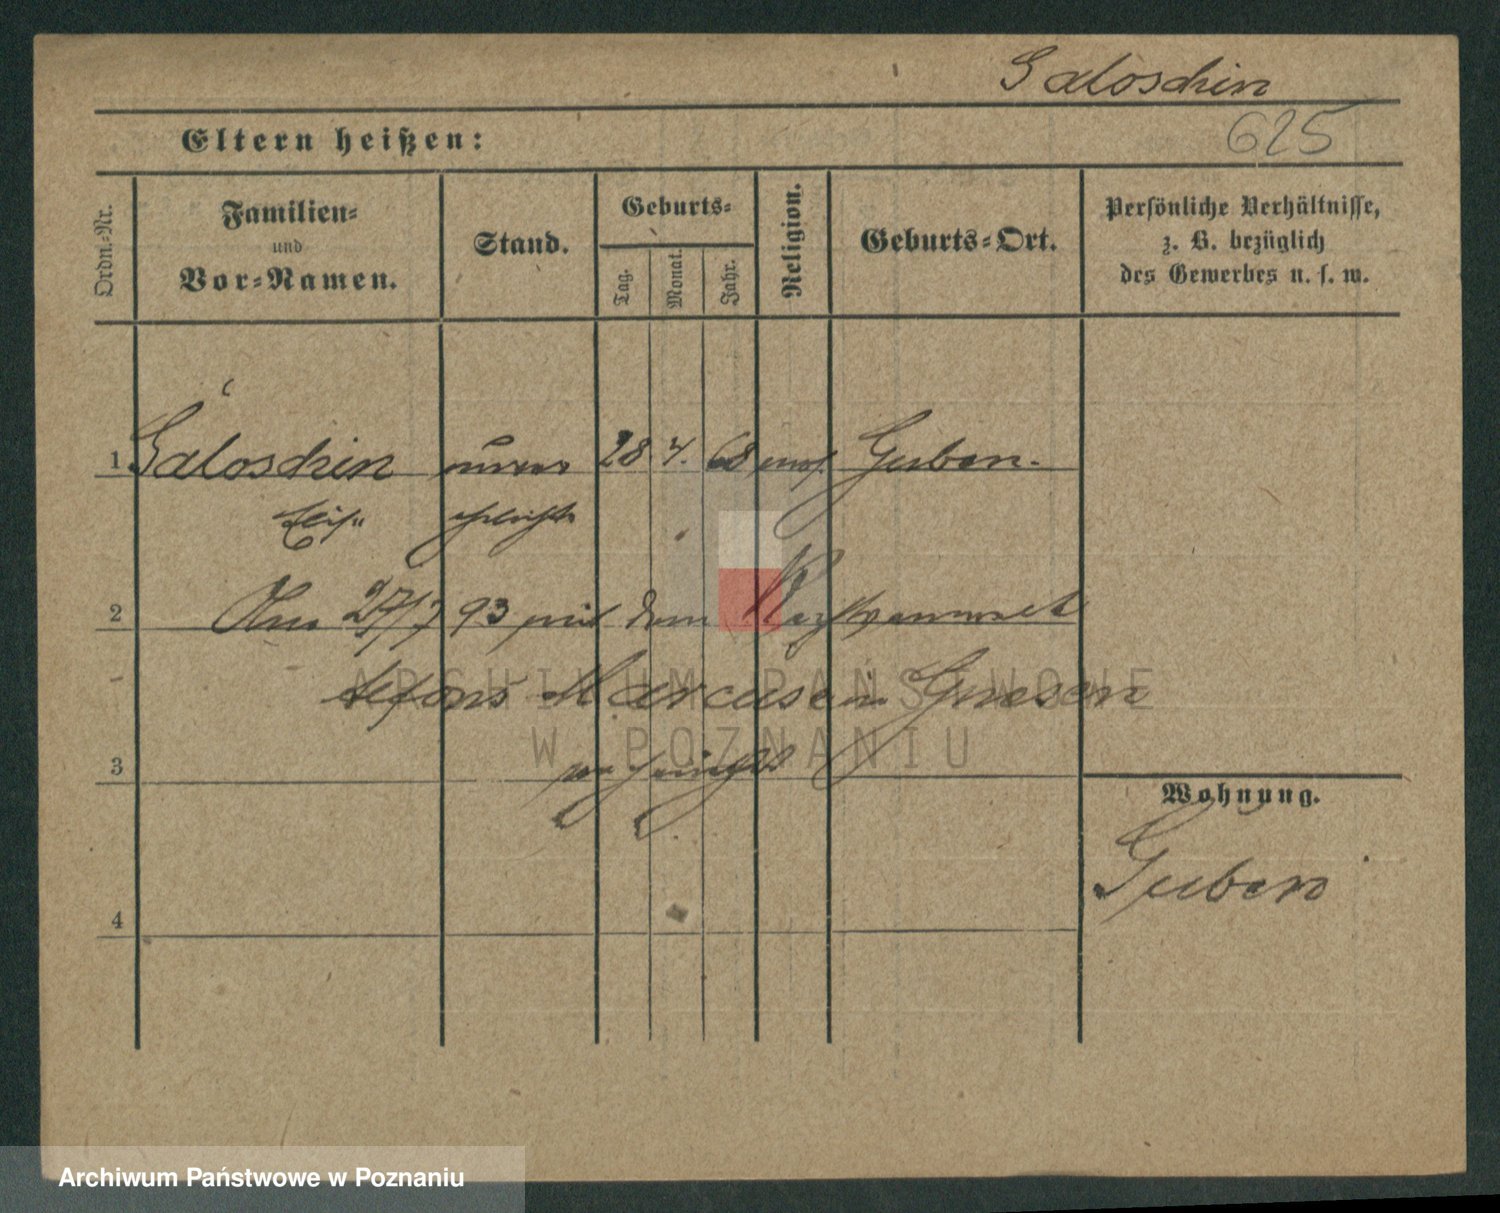 Galoschin
625
Eltern heißen:
Ordn.-Nr.
Familien-
und
Vor-Namen.
Stand.
Geburts-
Tag.
Monat.
Jahr.
Religion.
Geburts-Ort.
Persönliche Verhältnisse,
z. B. bezüglich
des Gewerbes u. s. w.
1 Galoschin 28 4. 68 mos. Guben.
2 Am 27/7 93 mit dem Rechtsanwalt
Alfons Marcuse in Gnesen
3
Wohnung.
Guben
4
ARCHIWUM PAŃSTWOWE
W POZNANIU
Archiwum Państwowe w Poznaniu